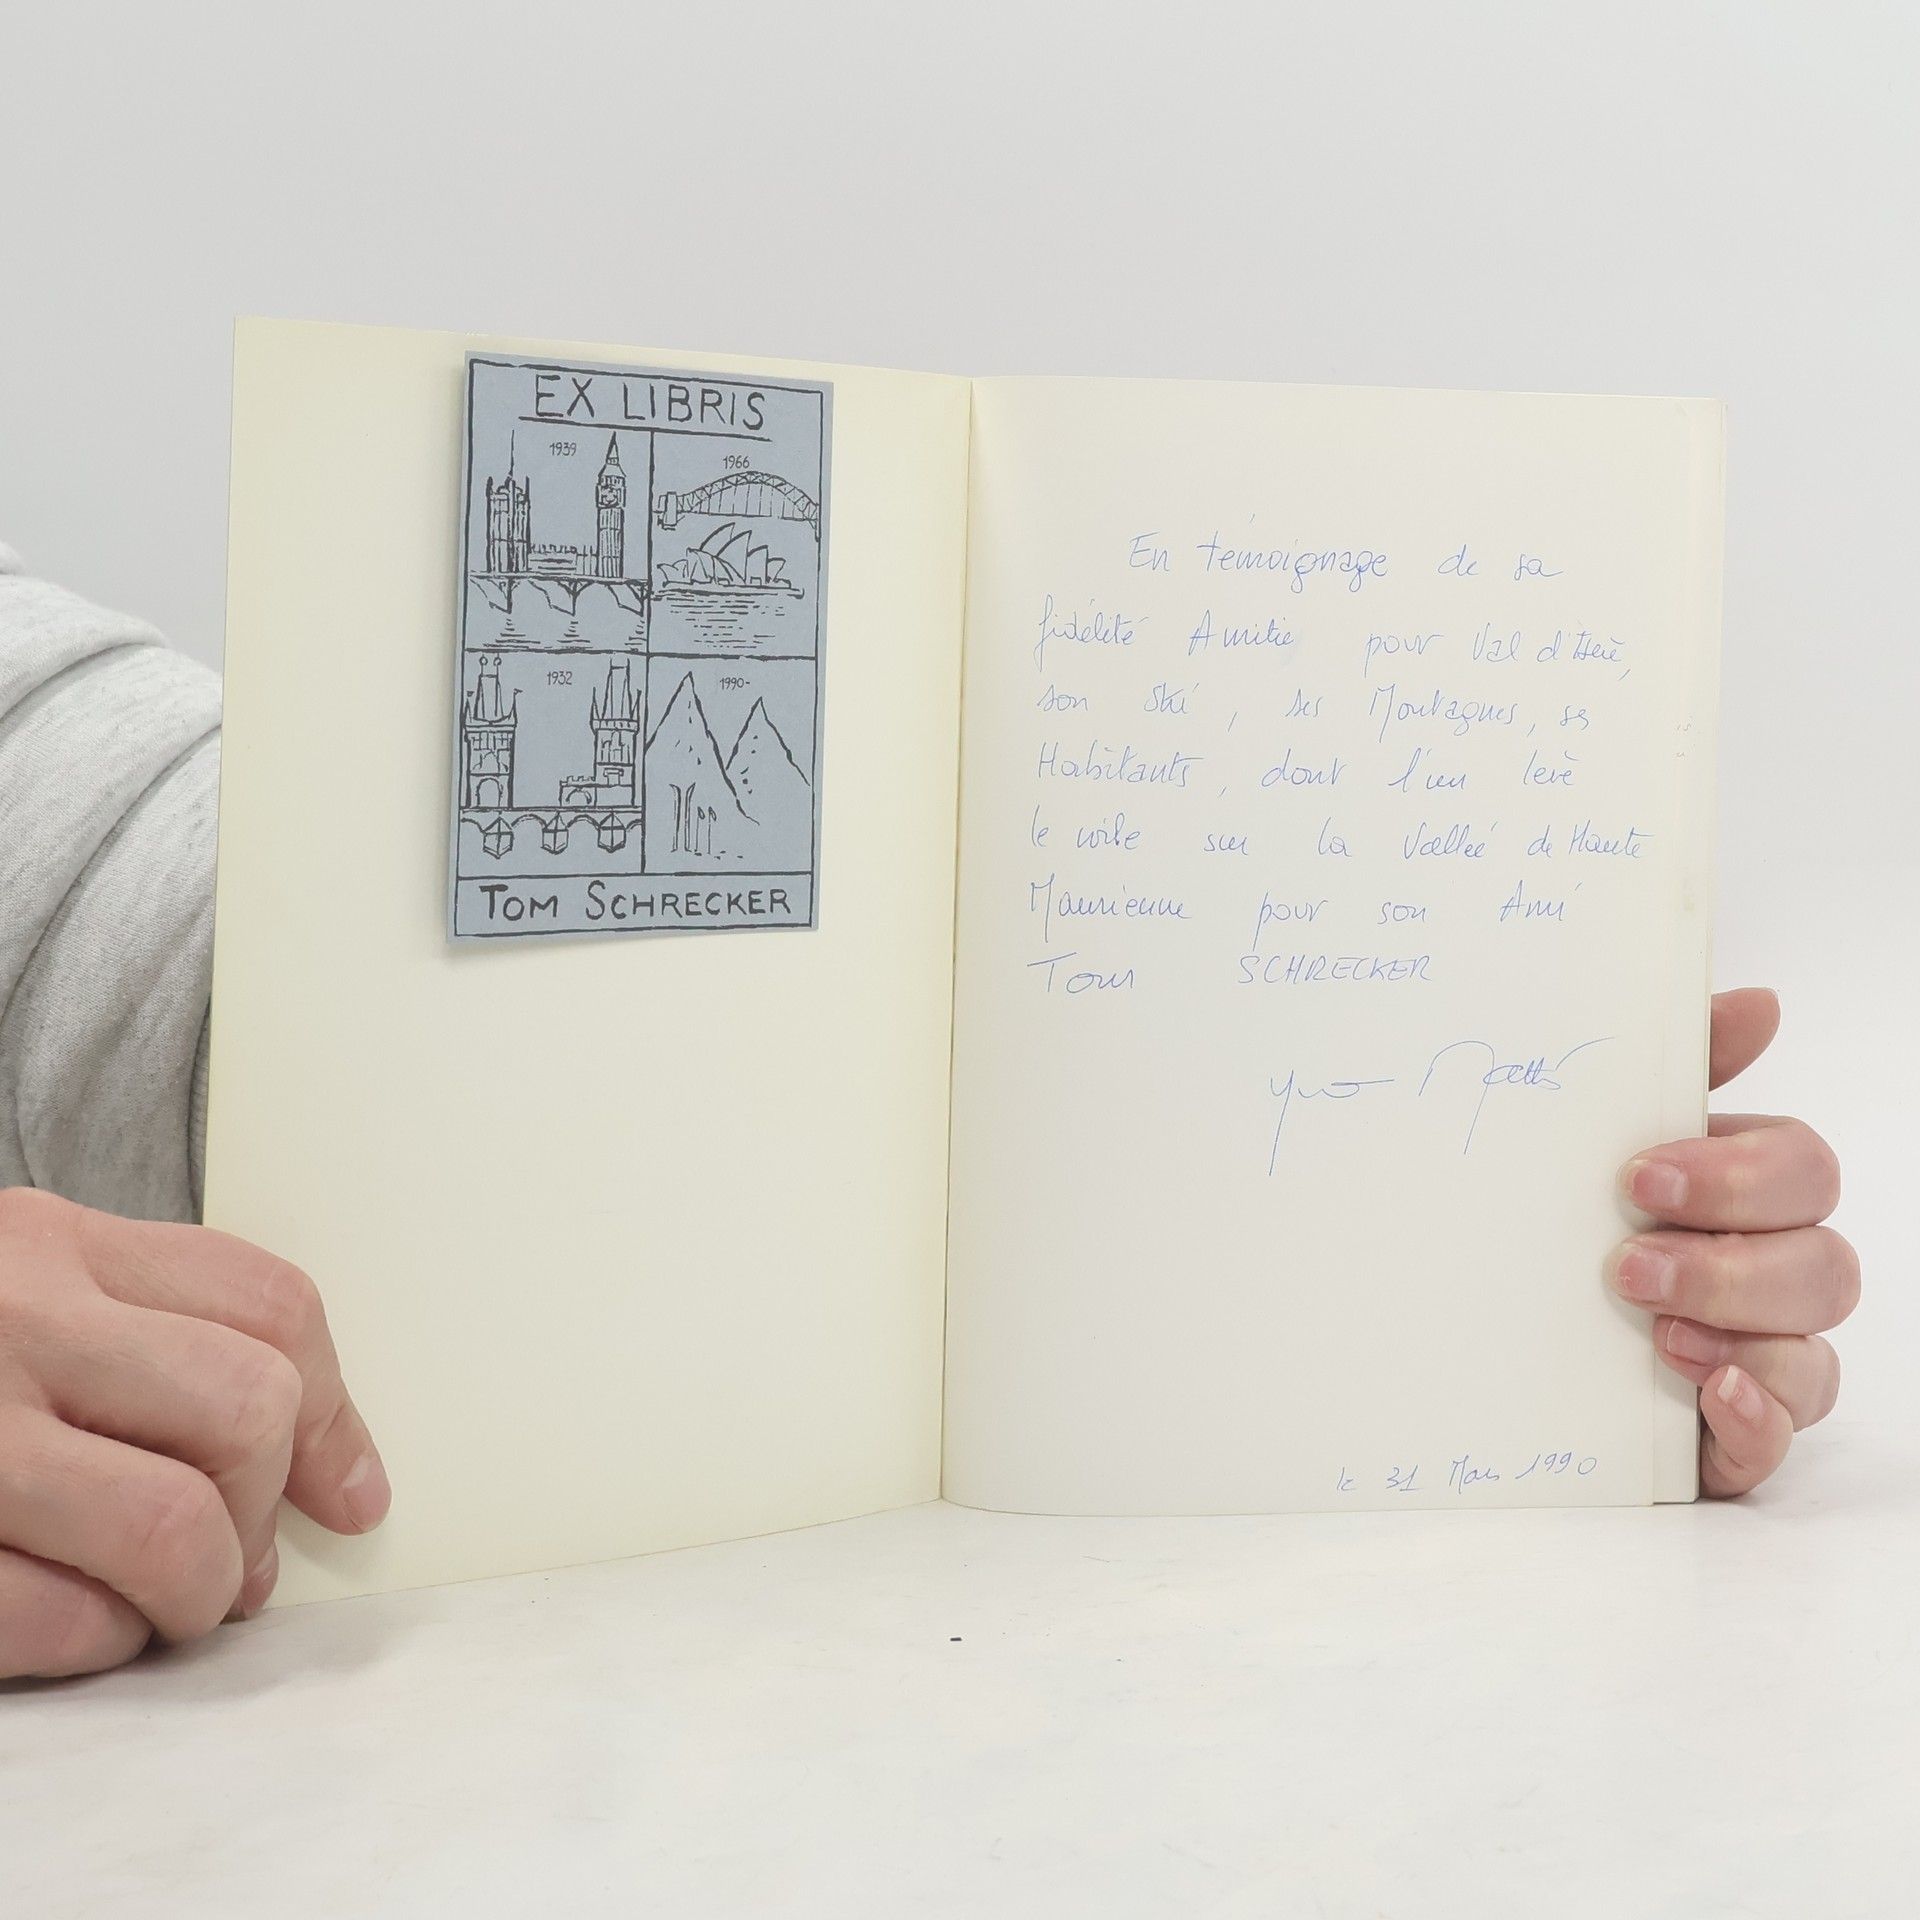 EX LIBRIS
1939
1966
1932
1990-
TOM SCHRECKER
En témoignage de sa
fidélité Amitié pour Val d'Isère,
son ski, ses Montagnes, ses
Habitants, dont l'un lève
le voile sur la Vallée de Haute
Maurienne pour son Ami
Tom SCHRECKER
le 31 Mars 1990